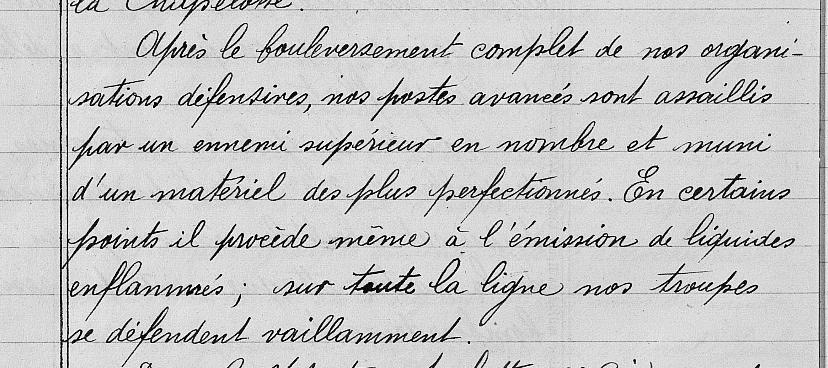 la Chapelotte.
Après le bouleversement complet de nos organi-
sations défensives, nos postes avancés sont assaillis
par un ennemi supérieur en nombre et muni
d'un matériel des plus perfectionnés. En certains
points il procède même à l'émission de liquides
enflammés ; sur toute la ligne nos troupes
se défendent vaillamment.